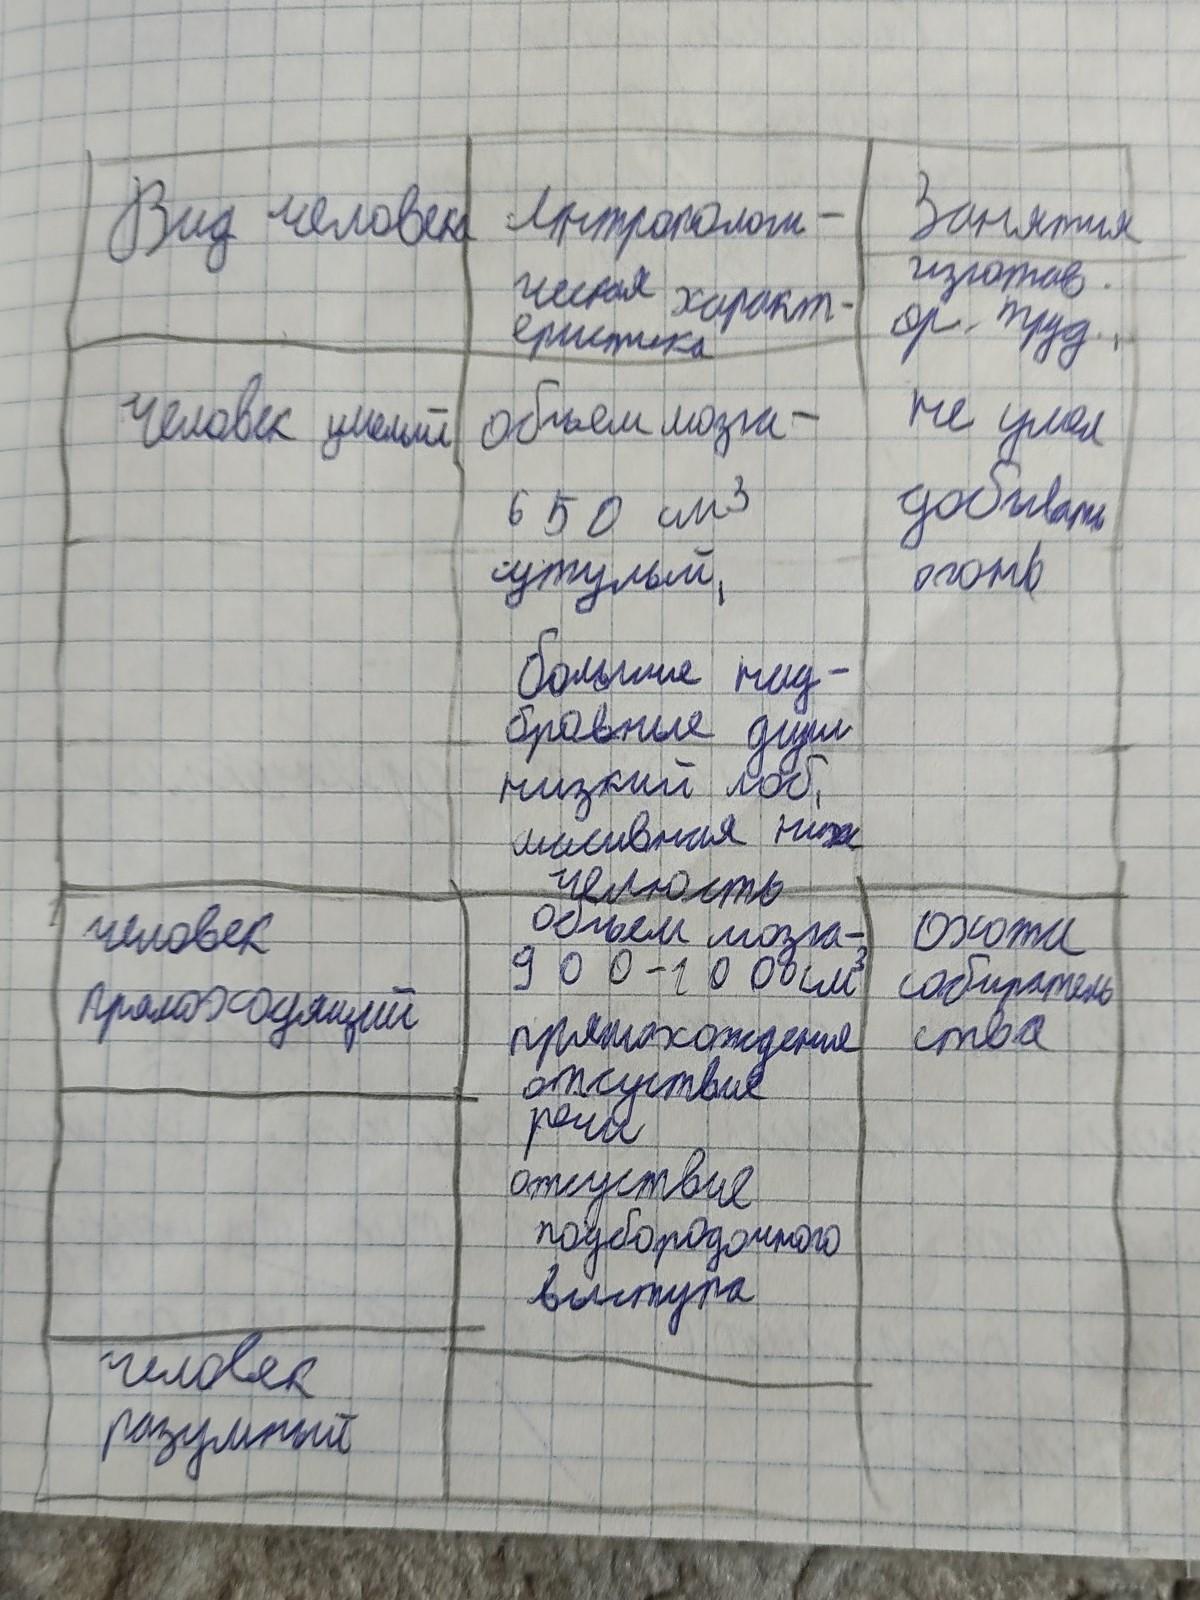 Вид человека
Антропологи-
ческая характ-
еристика
Занятия
изготав.
ор. труд.,
не умел
добывать
огонь
человек умелый
объем мозга-
650 см³
сутулый,
большие над-
бровные дуги
низкий лоб,
массивная ниж
челюсть
человек
прямоходящий
объем мозга-
900-1000см³
прямохождения
отсуствие
речи
отсуствие
подбородочного
выступа
охота
собиратель
ства
человек
разумный